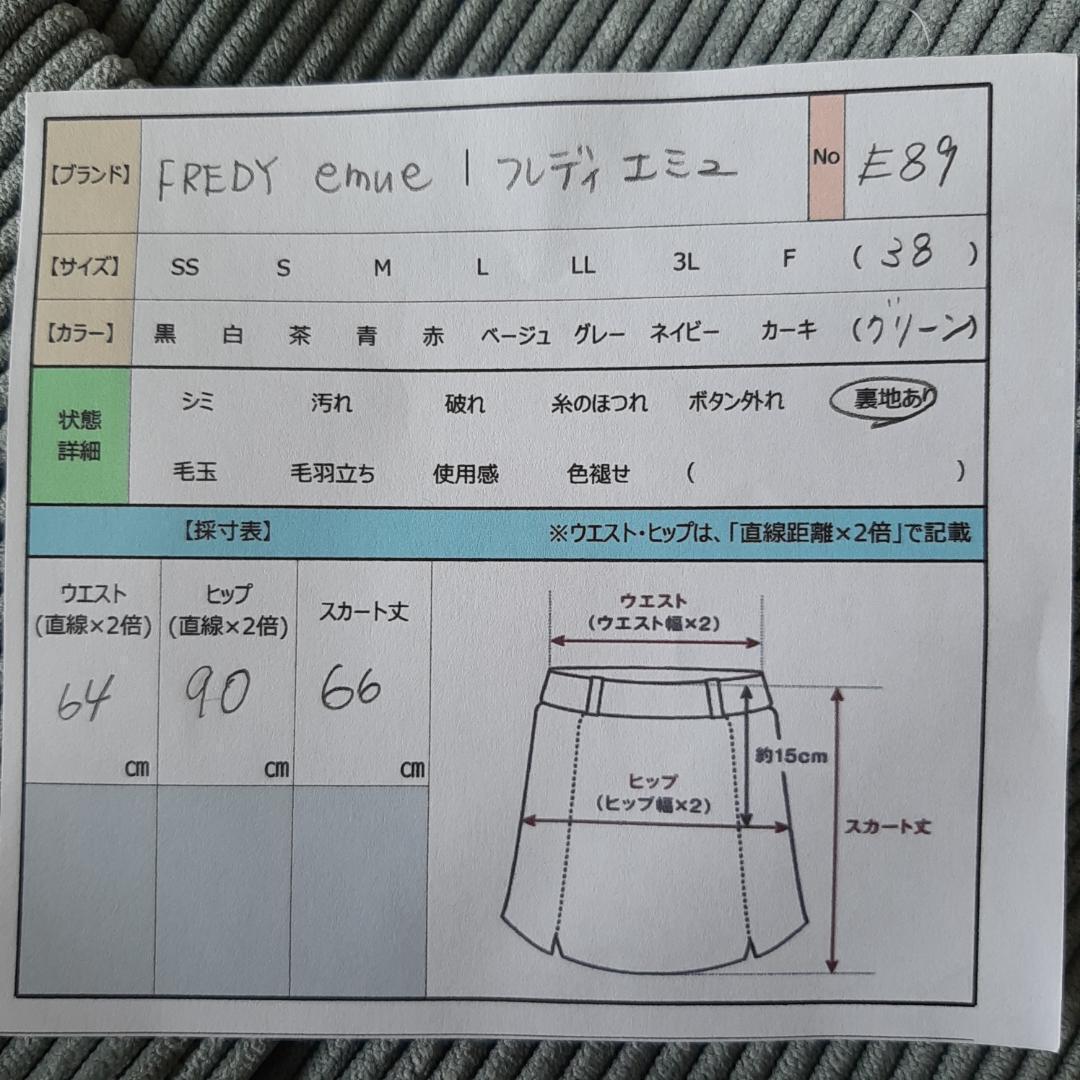 【ブランド】 FREDY emue | フレディ エミュ No E89
【サイズ】 SS S M L LL 3L F ( 38 )
【カラー】 黒 白 茶 青 赤 ベージュ グレー ネイビー カーキ (グリーン)
状態
詳細
シミ 汚れ 破れ 糸のほつれ ボタン外れ 裏地あり
毛玉 毛羽立ち 使用感 色褪せ ( )
【採寸表】 ※ウエスト・ヒップは、「直線距離×2倍」で記載
ウエスト
(直線×2倍)
64
cm
ヒップ
(直線×2倍)
90
cm
スカート丈
66
cm
ウエスト
(ウエスト幅×2)
約15cm
ヒップ
(ヒップ幅×2)
スカート丈